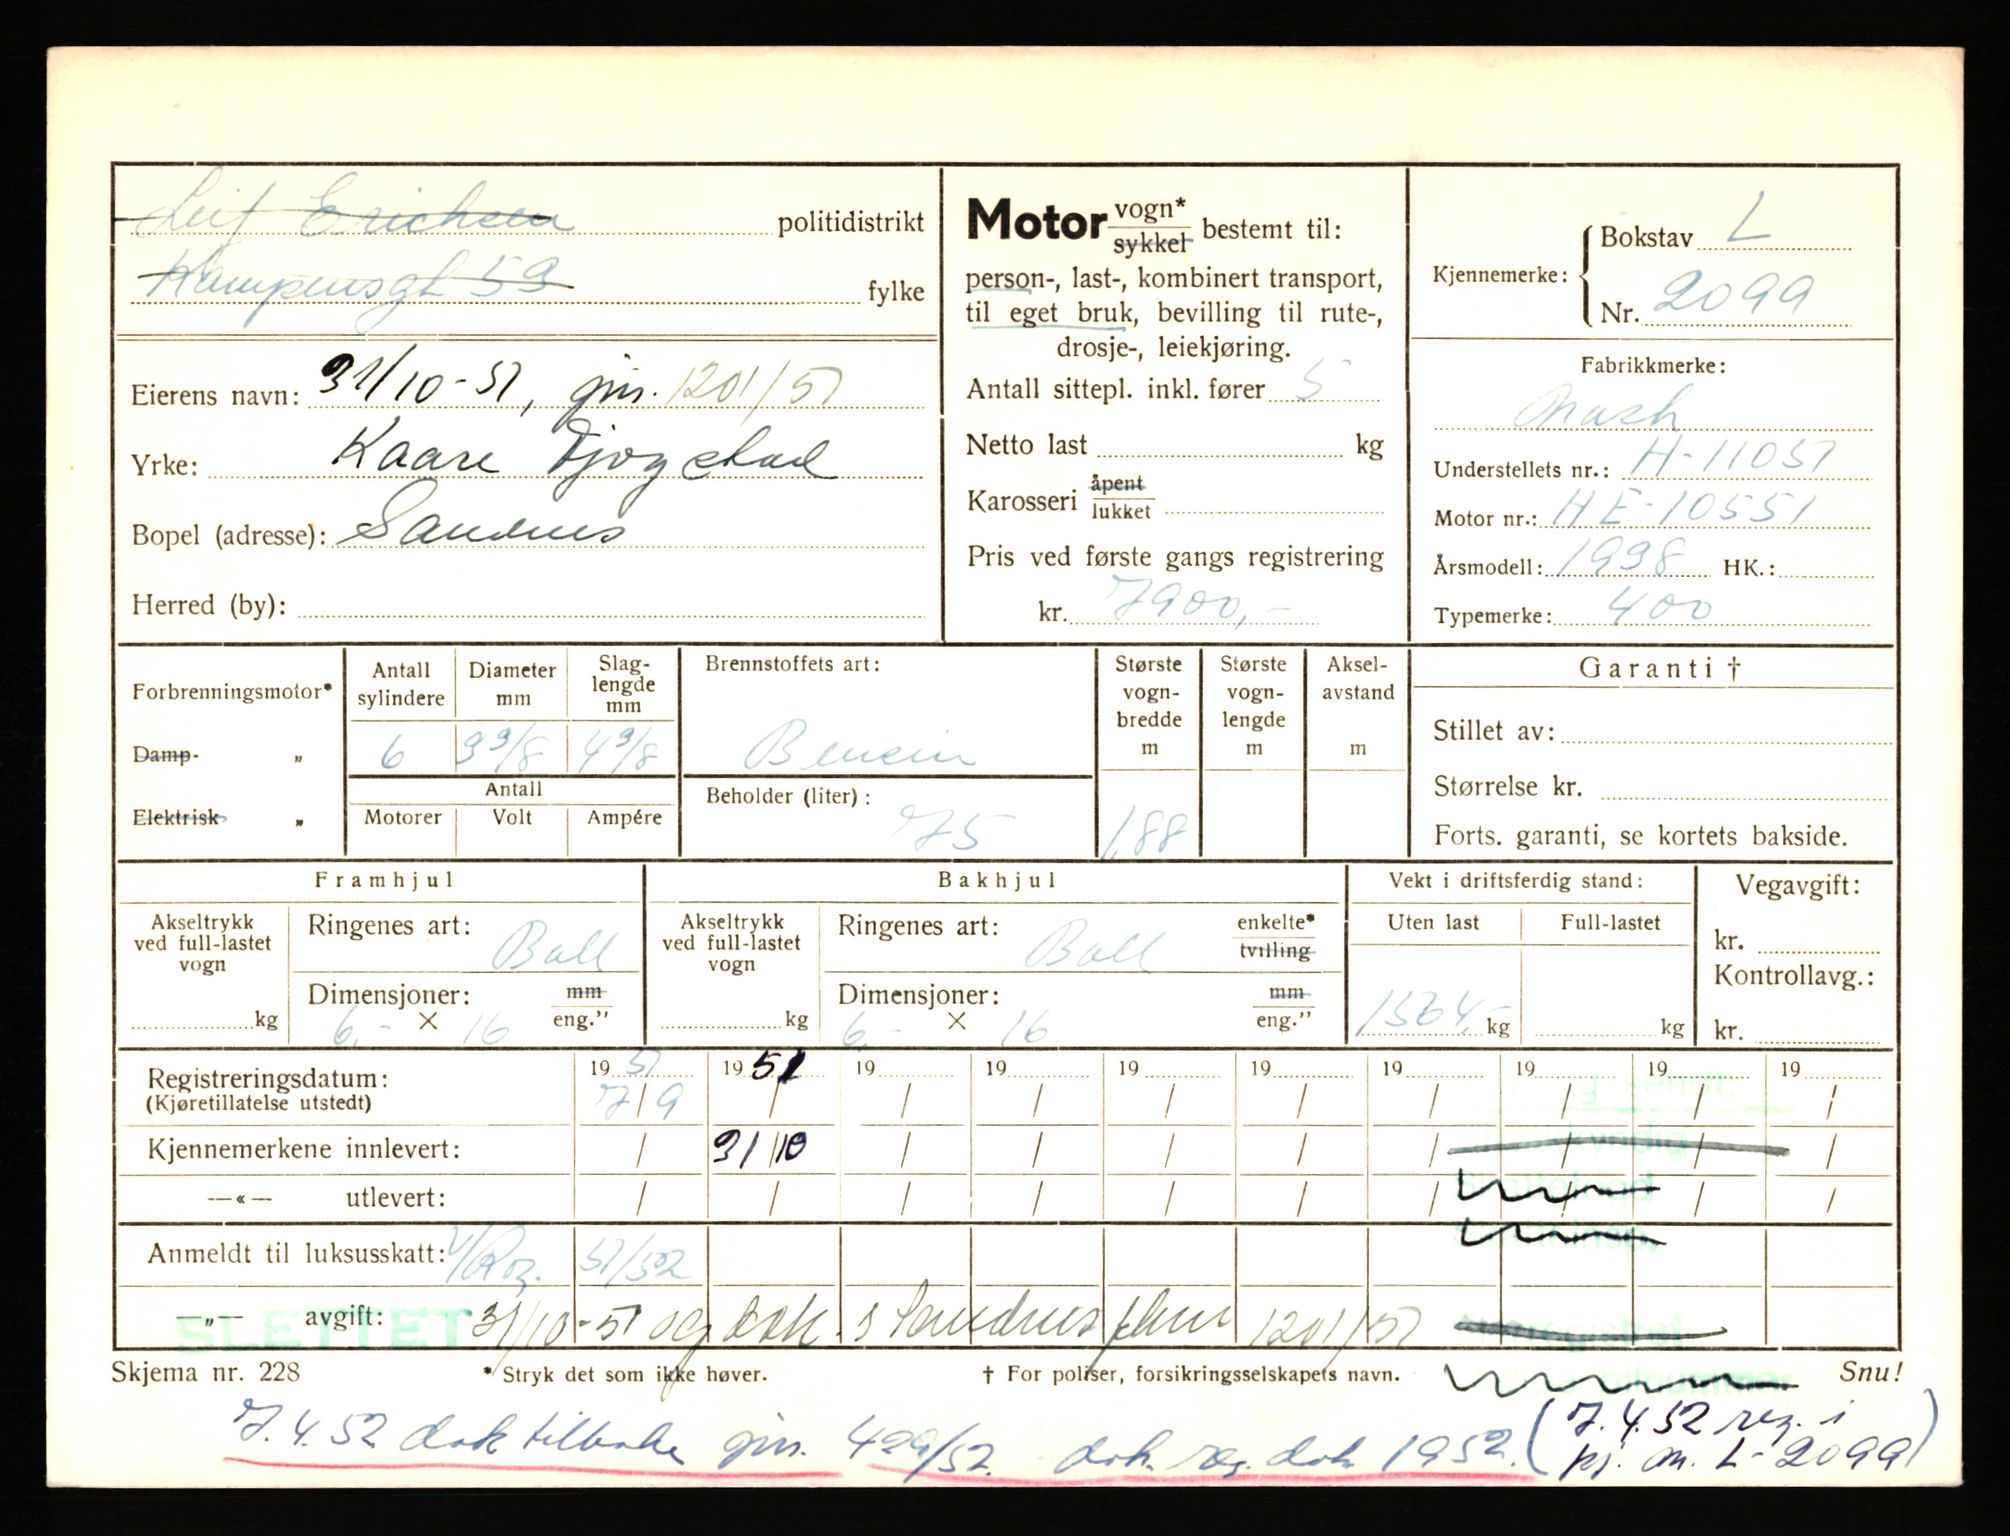 Leif Erichsen politidistrikt
Kampensgt 59 fylke
Eierens navn: 31/10-51, jnr. 1201/51
Yrke: Kaare
Bopel (adresse): Sandnes
Herred (by):
Motor vogn* sykkel bestemt til:
person-, last-, kombinert transport,
til eget bruk, bevilling til rute-,
drosje-, leiekjøring.
Antall sittepl. inkl. fører 5
Netto last kg
Karosseri åpent lukket
Pris ved første gangs registrering
kr. 7900,-
Kjennemerke: { Bokstav L
Nr. 2099
Fabrikkmerke:
Nash
Understellets nr.: H-11051
Motor nr.: HE-10551
Årsmodell: 1938 HK.:
Typemerke: 400
Forbrenningsmotor*
Damp- „
Elektrisk „
Antall sylindere
6
Diameter mm
3 3/8
Slag-lengde mm
4 3/8
Antall
Motorer Volt Ampére
Brennstoffets art:
Bensin
Beholder (liter):
75
Største vogn-bredde m
1,88
Største vogn-lengde m
Aksel-avstand m
Garanti †
Stillet av:
Størrelse kr.
Forts. garanti, se kortets bakside.
Framhjul
Akseltrykk ved full-lastet vogn
kg
Ringenes art: Ball
Dimensjoner: mm eng."
6,- × 16
Bakhjul
Akseltrykk ved full-lastet vogn
kg
Ringenes art: Ball enkelte* tvilling
Dimensjoner: mm eng."
6,- × 16
Vekt i driftsferdig stand:
Uten last Full-lastet
1564,- kg kg
Vegavgift:
kr.
Kontrollavg.:
kr.
Registreringsdatum: 19 51 19 51 19 19 19 19 19 19 19 19
(Kjøretillatelse utstedt) 7/9 / / / / / / / / /
Kjennemerkene innlevert: / 31/10 / / / / / / / /
—«— utlevert: / / / / / / / / / /
Anmeldt til luksusskatt: 51/52
—„— avgift: 31/10-51 og dok. s Sandnes jnr 1201/51
SLETTET
Skjema nr. 228 * Stryk det som ikke høver. † For poliser, forsikringsselskapets navn. Snu!
7.4.52 dok tilbake jnr. 429/52. dok. reg. dok 1952. (7.4.52 reg. i
kj. m. L-2099)